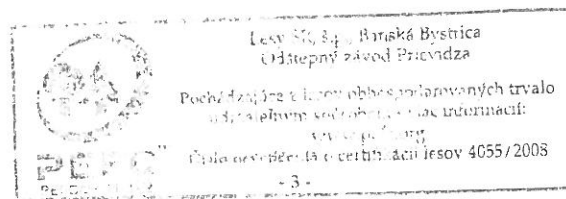 Lesy SR, š.p., Banská Bystrica
Odštepný závod Prievidza
Pochádzajúce z lesov obhospodarovaných trvalo
viac informácií:
PEFC
Číslo osvedčenia o certifikácii lesov 4055/2008
- 3 -